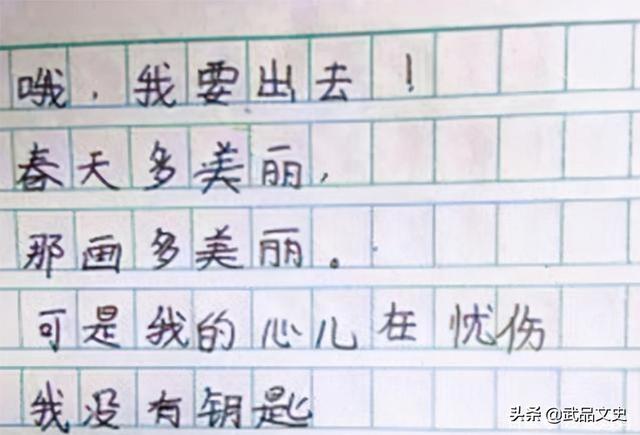 哦，我要出去！
春天多美丽，
那画多美丽。
可是我的心儿在忧伤
我没有钥匙
头条 @武品文史